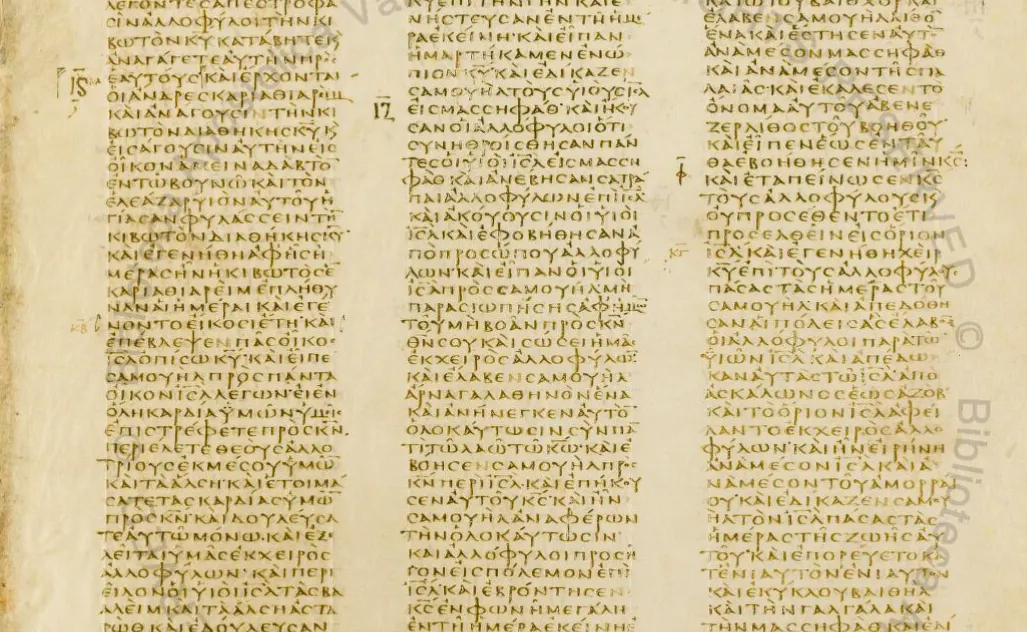 ΛΕΓΟΝΤΕΣΑΠΕΣΤΡΟΦΑ
ΣΙΝΑΛΛΟΦΥΛΟΙΤΗΝΚΙ
ΒΩΤΟΝΚ̅Υ̅ΚΑΤΑΒΗΤΕΚ
ΑΝΑΓΑΓΕΤΕΑΥΤΗΝΠΡ
ΕΑΥΤΟΥΣΚΑΙΕΡΧΟΝΤΑΙ
ΟΙΑΝΔΡΕΣΚΑΡΙΑΘΙΑΡΙΜ
ΚΑΙΑΝΑΓΟΥΣΙΝΤΗΝΚΙ
ΒΩΤΟΝΔΙΑΘΗΚΗΣΚ̅Υ̅Κ
ΕΙΣΑΓΟΥΣΙΝΑΥΤΗΝΕΙΣ
ΟΙΚΟΝΑΜΕΙΝΑΔΑΒΤΟ
ΕΝΤΩΒΟΥΝΩΚΑΙΤΟΝ
ΕΛΕΑΖΑΡΥΙΟΝΑΥΤΟΥΗ
ΓΙΑΣΑΝΦΥΛΑΣΣΕΙΝΤΗ
ΚΙΒΩΤΟΝΔΙΑΘΗΚΗΣΚ̅Υ̅
ΚΑΙΕΓΕΝΗΘΗΑΦΗΣΗ
ΜΕΡΑΣΗΝΗΚΙΒΩΤΟΣΕ
ΚΑΡΙΑΘΙΑΡΕΙΜΕΠΛΗΘΥ
ΝΑΝΑΙΗΜΕΡΑΙΚΑΙΕΓΕ
ΝΟΝΤΟΕΙΚΟΣΙΕΤΗΚΑΙ
ΕΠΕΒΛΕΨΕΝΠΑΣΟΙΚΟ
Ι̅Σ̅Λ̅ΟΠΙΣΩΚ̅Υ̅ΚΑΙΕΙΠΕ
ΣΑΜΟΥΗΛΠΡΟΣΠΑΝΤΑ
ΟΙΚΟΝΙ̅Σ̅Λ̅ΛΕΓΩΝΕΙΕΝ
ΟΛΗΚΑΡΔΙΑΥΜΩΝΥΜΙΣ
ΕΠΙΣΤΡΕΦΕΤΕΠΡΟΣΚ̅Ν̅
ΠΕΡΙΕΛΕΤΕΘΕΟΥΣΑΛΛΟ
ΤΡΙΟΥΣΕΚΜΕΣΟΥΥΜΩ
ΚΑΙΤΑΑΛΣΗΚΑΙΕΤΟΙΜΑ
ΣΑΤΕΤΑΣΚΑΡΔΙΑΣΥΜΩ
ΠΡΟΣΚ̅Ν̅ΚΑΙΔΟΥΛΕΥΣΑ
ΤΕΑΥΤΩΜΟΝΩΚΑΙΕΞΕ
ΛΕΙΤΑΙΥΜΑΣΕΚΧΕΙΡΟΣ
ΑΛΛΟΦΥΛΩΝΚΑΙΠΕΡΙ
ΕΙΛΟΝΟΙΥΙΟΙΙ̅Σ̅Λ̅ΤΑΣΒΑ
ΑΛΕΙΜΚΑΙΤΑΑΛΣΗΑΣΤΑ
ΡΩΘΚΑΙΕΔΟΥΛΕΥΣΑΝ
ΝΗΣΤΕΥΣΑΝΕΝΤΗΗΜΕ
ΡΑΕΚΕΙΝΗΚΑΙΕΙΠΑΝ
ΗΜΑΡΤΗΚΑΜΕΝΕΝΩ
ΠΙΟΝΚ̅Υ̅ΚΑΙΕΔΙΚΑΖΕΝ
ΣΑΜΟΥΗΛΤΟΥΣΥΙΟΥΣΙ̅Σ̅Λ̅
ΕΙΣΜΑΣΣΗΦΑΘΚΑΙΗΚΟΥ
ΣΑΝΟΙΑΛΛΟΦΥΛΟΙΟΤΙ
ΣΥΝΗΘΡΟΙΣΘΗΣΑΝΠΑΝ
ΤΕΣΟΙΥΙΟΙΙ̅Σ̅Λ̅ΕΙΣΜΑΣΣΗ
ΦΑΘΚΑΙΑΝΕΒΗΣΑΝΣΑΤΡΑ
ΠΑΙΑΛΛΟΦΥΛΩΝΕΠΙΙ̅Σ̅Λ̅
ΚΑΙΑΚΟΥΟΥΣΙΝΟΙΥΙΟΙ
Ι̅Σ̅Λ̅ΚΑΙΕΦΟΒΗΘΗΣΑΝΑ
ΠΟΠΡΟΣΩΠΟΥΑΛΛΟΦΥ
ΛΩΝΚΑΙΕΙΠΑΝΟΙΥΙΟΙ
Ι̅Σ̅Λ̅ΠΡΟΣΣΑΜΟΥΗΛΜΗ
ΠΑΡΑΣΙΩΠΗΣΗΣΑΦΗΜΩ
ΤΟΥΜΗΒΟΑΝΠΡΟΣΚ̅Ν̅
ΘΝΣΟΥΚΑΙΣΩΣΕΙΗΜΑΣ
ΕΚΧΕΙΡΟΣΑΛΛΟΦΥΛΩ
ΚΑΙΕΛΑΒΕΝΣΑΜΟΥΗΛ
ΑΡΝΑΓΑΛΑΘΗΝΟΝΕΝΑ
ΚΑΙΑΝΗΝΕΓΚΕΝΑΥΤΟ
ΟΛΟΚΑΥΤΩΣΙΝΣΥΝΠΑ
ΤΙΤΩΛΑΩΤΩΚ̅Ω̅ΚΑΙΕ
ΒΟΗΣΕΝΣΑΜΟΥΗΛΠΡΟΣ
Κ̅Ν̅ΠΕΡΙΙ̅Σ̅Λ̅ΚΑΙΕΠΗΚΟΥ
ΣΕΝΑΥΤΟΥΚ̅Σ̅ΚΑΙΗΝ
ΣΑΜΟΥΗΛΑΝΑΦΕΡΩΝ
ΤΗΝΟΛΟΚΑΥΤΩΣΙΝ
ΚΑΙΑΛΛΟΦΥΛΟΙΠΡΟΣΗ
ΓΟΝΕΙΣΠΟΛΕΜΟΝΕΠΙ
Ι̅Σ̅Λ̅ΚΑΙΕΒΡΟΝΤΗΣΕΝ
Κ̅Σ̅ΕΝΦΩΝΗΜΕΓΑΛΗ
ΕΝΤΗΗΜΕΡΑΕΚΕΙΝΗΕ
ΕΛΑΒΕΝΣΑΜΟΥΗΛΛΙΘΟ
ΕΝΑΚΑΙΕΣΤΗΣΕΝΑΥΤΟ
ΑΝΑΜΕΣΟΝΜΑΣΣΗΦΑΘ
ΚΑΙΑΝΑΜΕΣΟΝΤΗΣΠΑ
ΛΑΙΑΣΚΑΙΕΚΑΛΕΣΕΝΤΟ
ΟΝΟΜΑΑΥΤΟΥΑΒΕΝΕ
ΖΕΡΛΙΘΟΣΤΟΥΒΟΗΘΟΥ
ΚΑΙΕΙΠΕΝΕΩΣΕΝΤΑΥ
ΘΑΕΒΟΗΘΗΣΕΝΗΜΙΝΚ̅Σ̅
ΚΑΙΕΤΑΠΕΙΝΩΣΕΝΚ̅Σ̅
ΤΟΥΣΑΛΛΟΦΥΛΟΥΣΚ
ΟΥΠΡΟΣΕΘΕΝΤΟΕΤΙ
ΠΡΟΣΕΛΘΕΙΝΕΙΣΟΡΙΟΝ
Ι̅Σ̅Λ̅ΚΑΙΕΓΕΝΗΘΗΧΕΙΡ
Κ̅Υ̅ΕΠΙΤΟΥΣΑΛΛΟΦΥΛΟΥΣ
ΠΑΣΑΣΤΑΣΗΜΕΡΑΣΤΟΥ
ΣΑΜΟΥΗΛΚΑΙΑΠΕΔΟΘΗ
ΣΑΝΑΙΠΟΛΕΙΣΑΣΕΛΑΒΟ
ΟΙΑΛΛΟΦΥΛΟΙΠΑΡΑΤΩ
ΥΙΩΝΙ̅Σ̅Λ̅ΚΑΙΑΠΕΔΩ
ΚΑΝΑΥΤΑΣΤΩΙ̅Σ̅Λ̅ΑΠΟ
ΑΣΚΑΛΩΝΟΣΕΩΣΑΖΟΒ
ΚΑΙΤΟΟΡΙΟΝΙ̅Σ̅Λ̅ΑΦΕΙ
ΛΑΝΤΟΕΚΧΕΙΡΟΣΑΛΛΟ
ΦΥΛΩΝΚΑΙΗΝΕΙΡΗΝΗ
ΑΝΑΜΕΣΟΝΙ̅Σ̅Λ̅ΚΑΙΑ
ΝΑΜΕΣΟΝΤΟΥΑΜΟΡΡΑΙ
ΟΥΚΑΙΕΔΙΚΑΖΕΝΣΑΜΟΥ
ΗΛΤΟΝΙ̅Σ̅Λ̅ΠΑΣΑΣΤΑΣ
ΗΜΕΡΑΣΤΗΣΖΩΗΣΑΥ
ΤΟΥΚΑΙΕΠΟΡΕΥΕΤΟΚΑ
ΤΕΝΙΑΥΤΟΝΕΝΙΑΥΤΟΝ
ΚΑΙΕΚΥΚΛΟΥΒΑΙΘΗΛ
ΚΑΙΤΗΝΓΑΛΓΑΛΑΚΑΙ
ΤΗΝΜΑΣΣΗΦΑΘΚΑΙΕΔΙ